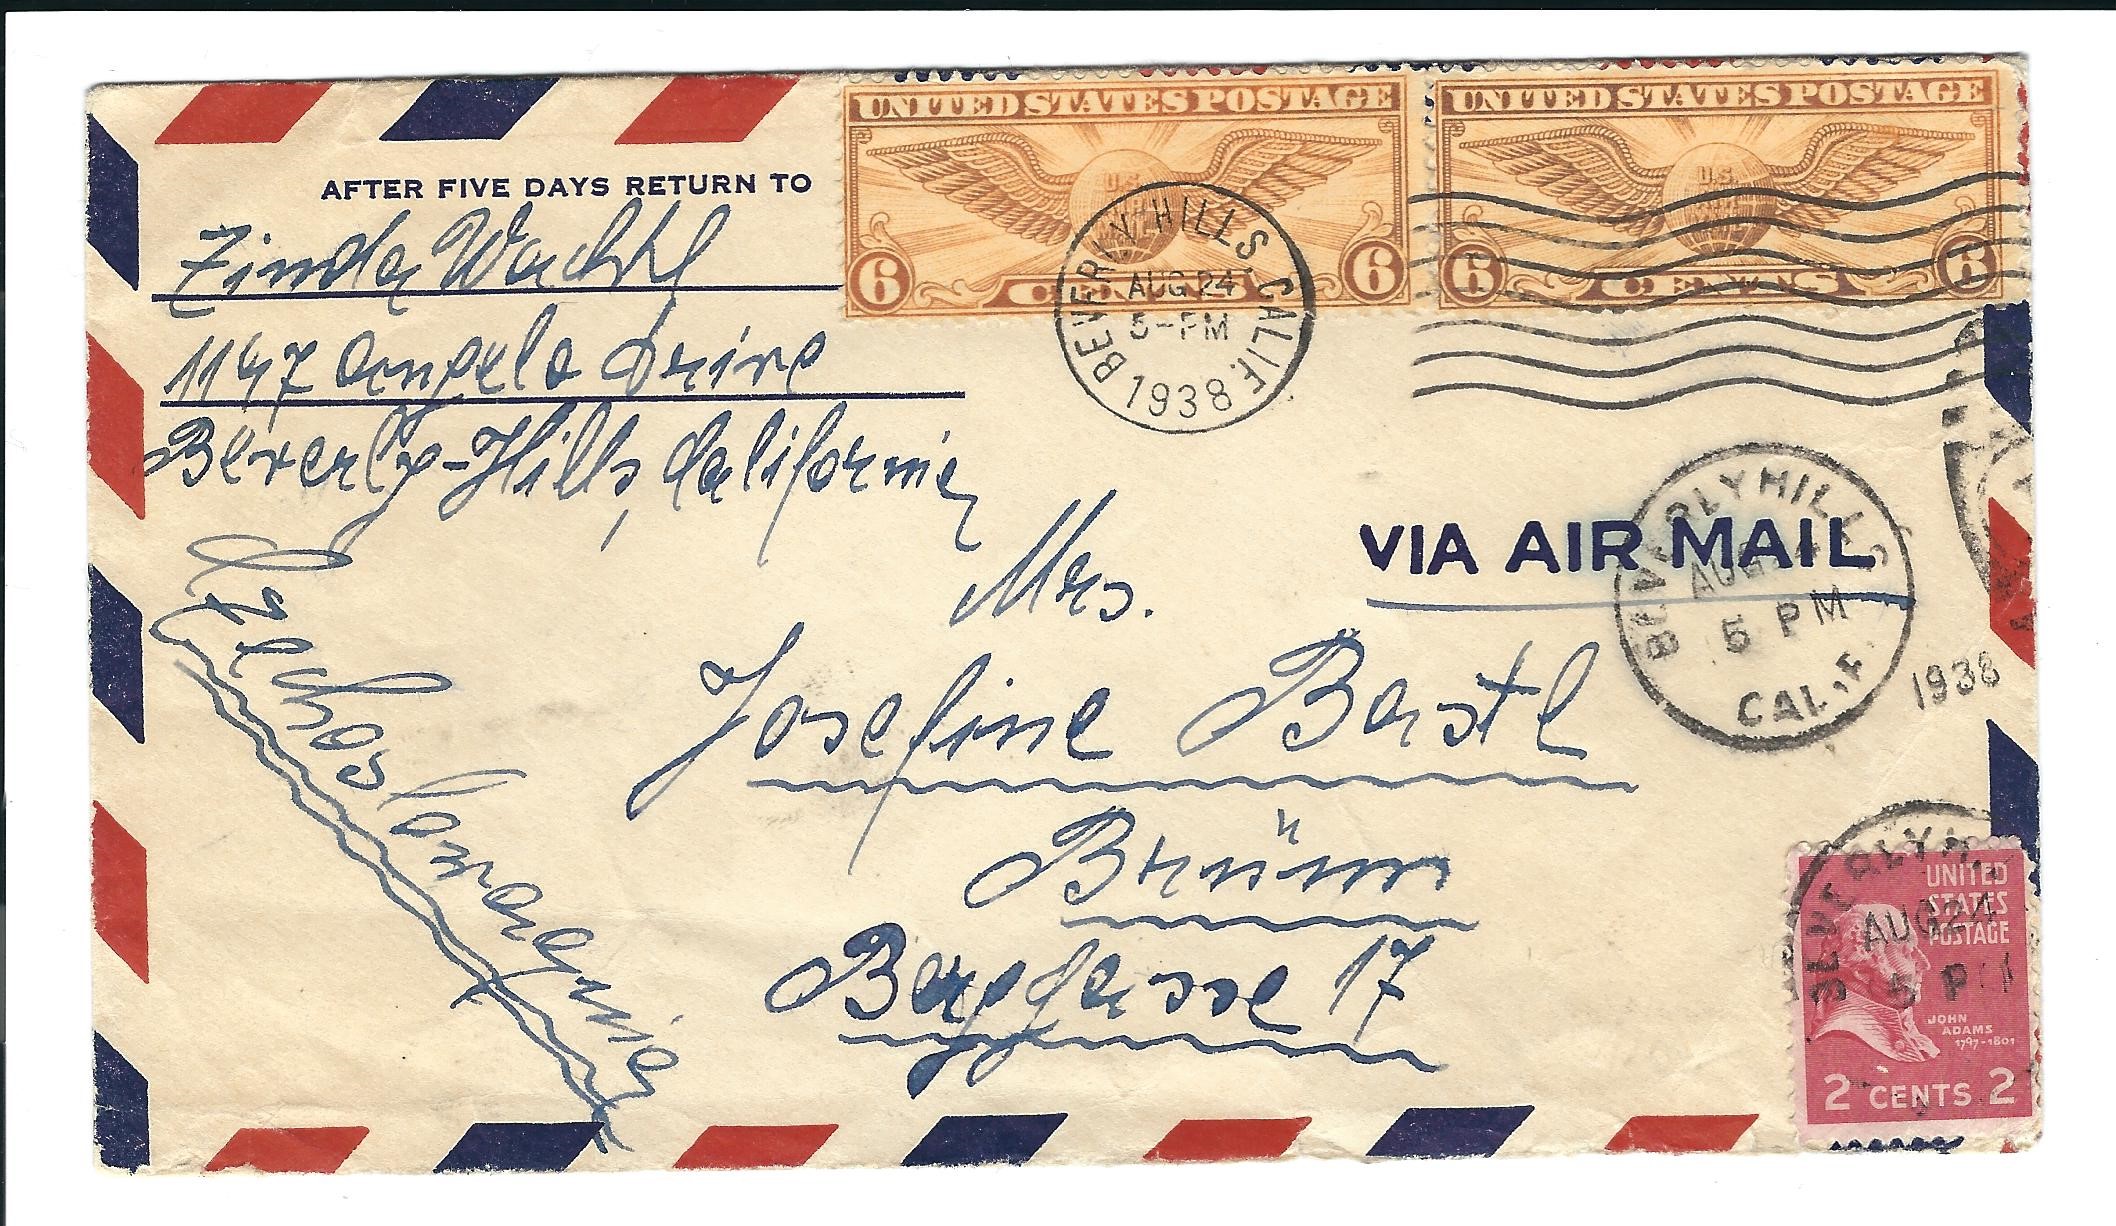 AFTER FIVE DAYS RETURN TO
Linda Wachtl
1197 Angelo Drive
Beverly-Hills, California
UNITED STATES POSTAGE
U.S.
6 CENTS 6
UNITED STATES POSTAGE
U.S.
6 CENTS 6
BEVERLY HILLS, CALIF.
AUG 24
5-PM
1938
VIA AIR MAIL
BEVERLY HILLS
AUG 24
5 PM
CALIF.
1938
Mrs.
Josefine Bastl
Brünn
Berggasse 17
Czechoslovaquie
BEVERLY H
AUG 24
5 P
UNITED
STATES
POSTAGE
JOHN
ADAMS
1797-1801
2 CENTS 2